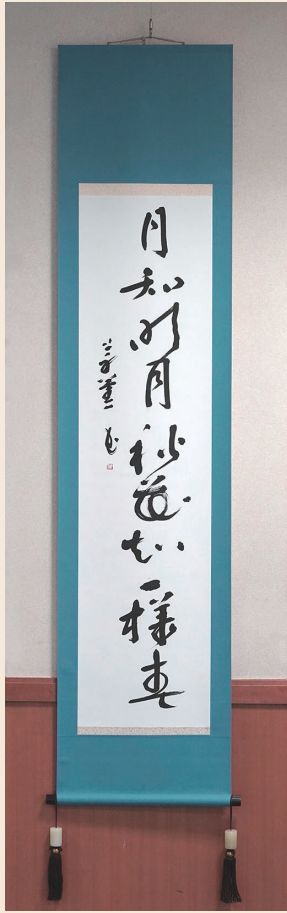 月知明月秋花知一様春